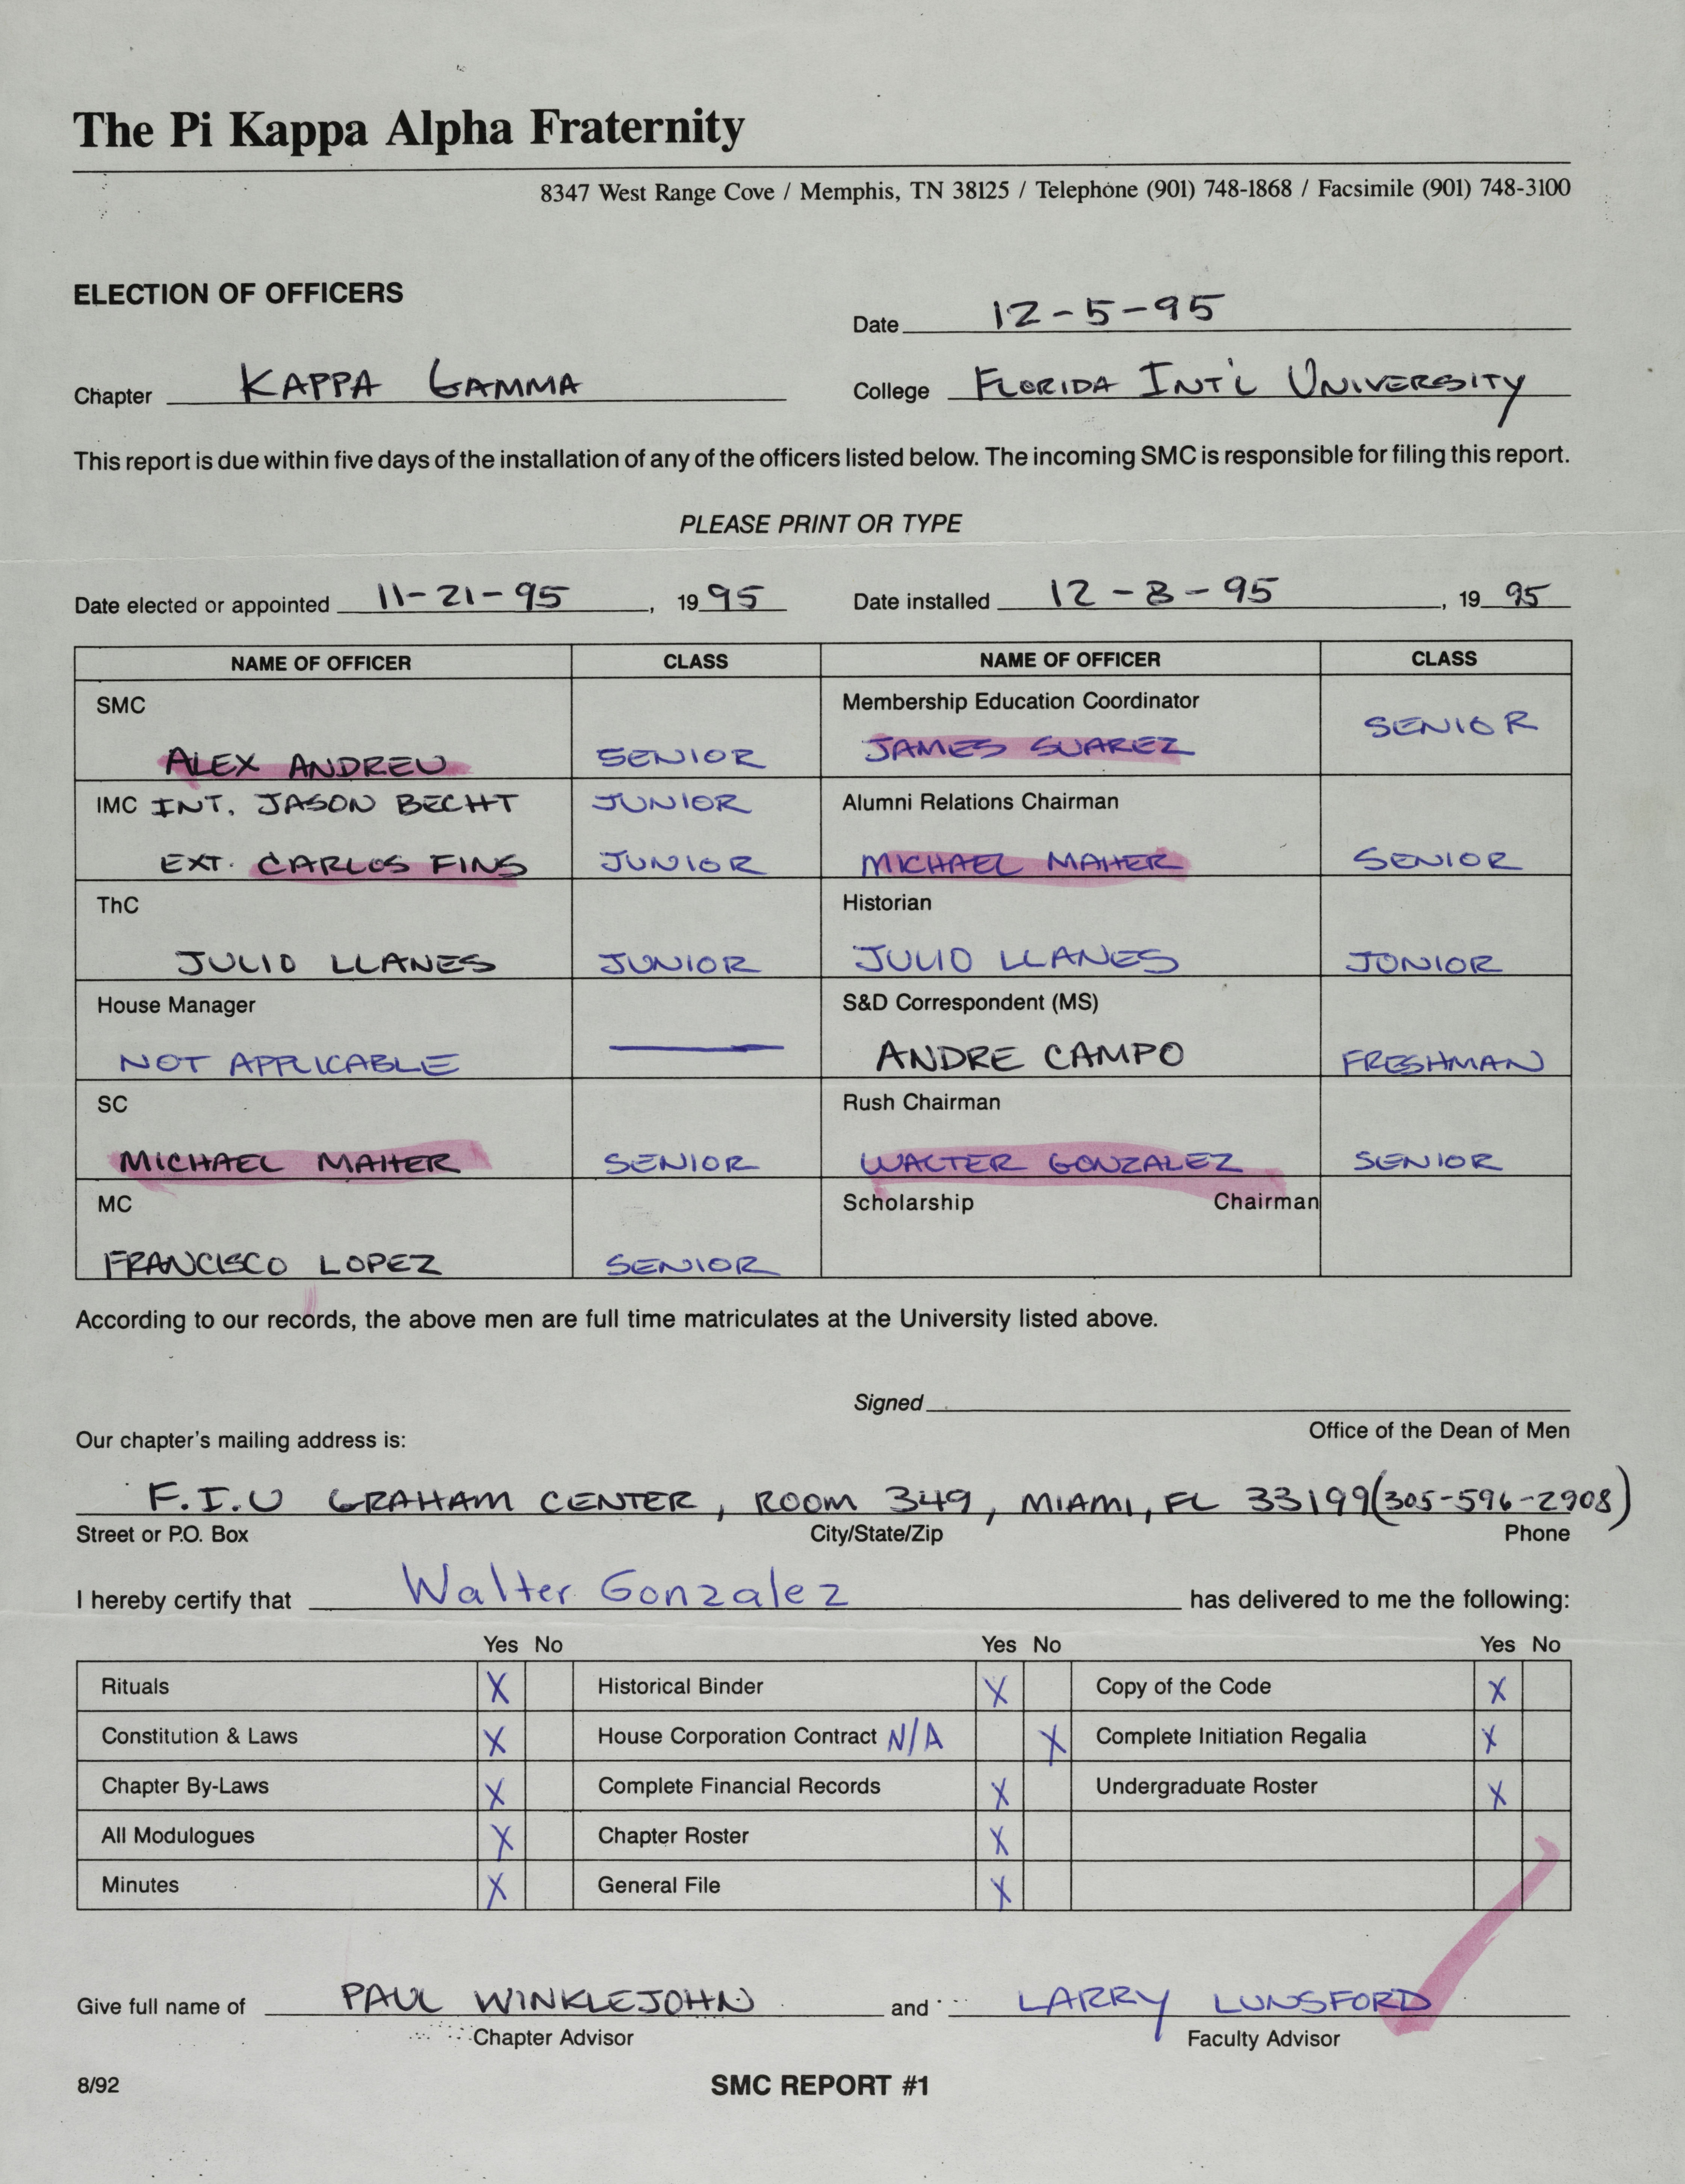 The Pi Kappa Alpha Fraternity
8347 West Range Cove / Memphis, TN 38125 / Telephone (901) 748-1868 / Facsimile (901) 748-3100
ELECTION OF OFFICERS
Date 12-5-95
Chapter KAPPA GAMMA College FLORIDA INT'L UNIVERSITY
This report is due within five days of the installation of any of the officers listed below. The incoming SMC is responsible for filing this report.
PLEASE PRINT OR TYPE
Date elected or appointed 11-21-95, 19 95 Date installed 12-8-95, 19 95
NAME OF OFFICER CLASS NAME OF OFFICER CLASS
SMC Membership Education Coordinator
ALEX ANDREU SENIOR JAMES SUAREZ SENIOR
IMC INT. JASON BECHT JUNIOR Alumni Relations Chairman
EXT. CARLOS FINS JUNIOR MICHAEL MAHER SENIOR
ThC Historian
JULIO LLANES JUNIOR JULIO LLANES JUNIOR
House Manager S&D Correspondent (MS)
NOT APPLICABLE — ANDRE CAMPO FRESHMAN
SC Rush Chairman
MICHAEL MAHER SENIOR WALTER GONZALEZ SENIOR
MC Scholarship Chairman
FRANCISCO LOPEZ SENIOR
According to our records, the above men are full time matriculates at the University listed above.
Signed
Office of the Dean of Men
Our chapter's mailing address is:
F.I.U GRAHAM CENTER, ROOM 349, MIAMI, FL 33199 (305-596-2908)
Street or P.O. Box City/State/Zip Phone
I hereby certify that Walter Gonzalez has delivered to me the following:
Yes No Yes No Yes No
Rituals X Historical Binder X Copy of the Code X
Constitution & Laws X House Corporation Contract N/A X Complete Initiation Regalia X
Chapter By-Laws X Complete Financial Records X Undergraduate Roster X
All Modulogues X Chapter Roster X
Minutes X General File X
Give full name of PAUL WINKLEJOHN and LARRY LUNSFORD
Chapter Advisor Faculty Advisor
8/92 SMC REPORT #1